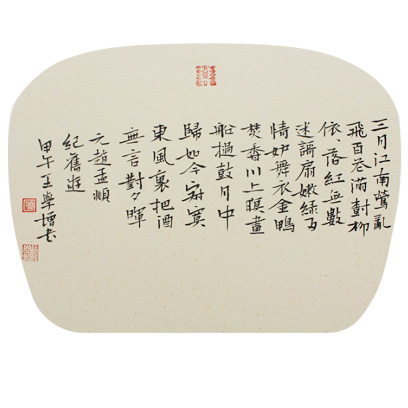 三月江南鶯亂
飛百花滿樹柳
依、落紅無數
迷謌扇嫩綠多
情妒舞衣金鴨
焚香川上暝畫
船撾鼓月中
歸如今寂寞
東風裏把酒
無言對夕暉
元趙孟頫
紀舊遊
甲午王學增書